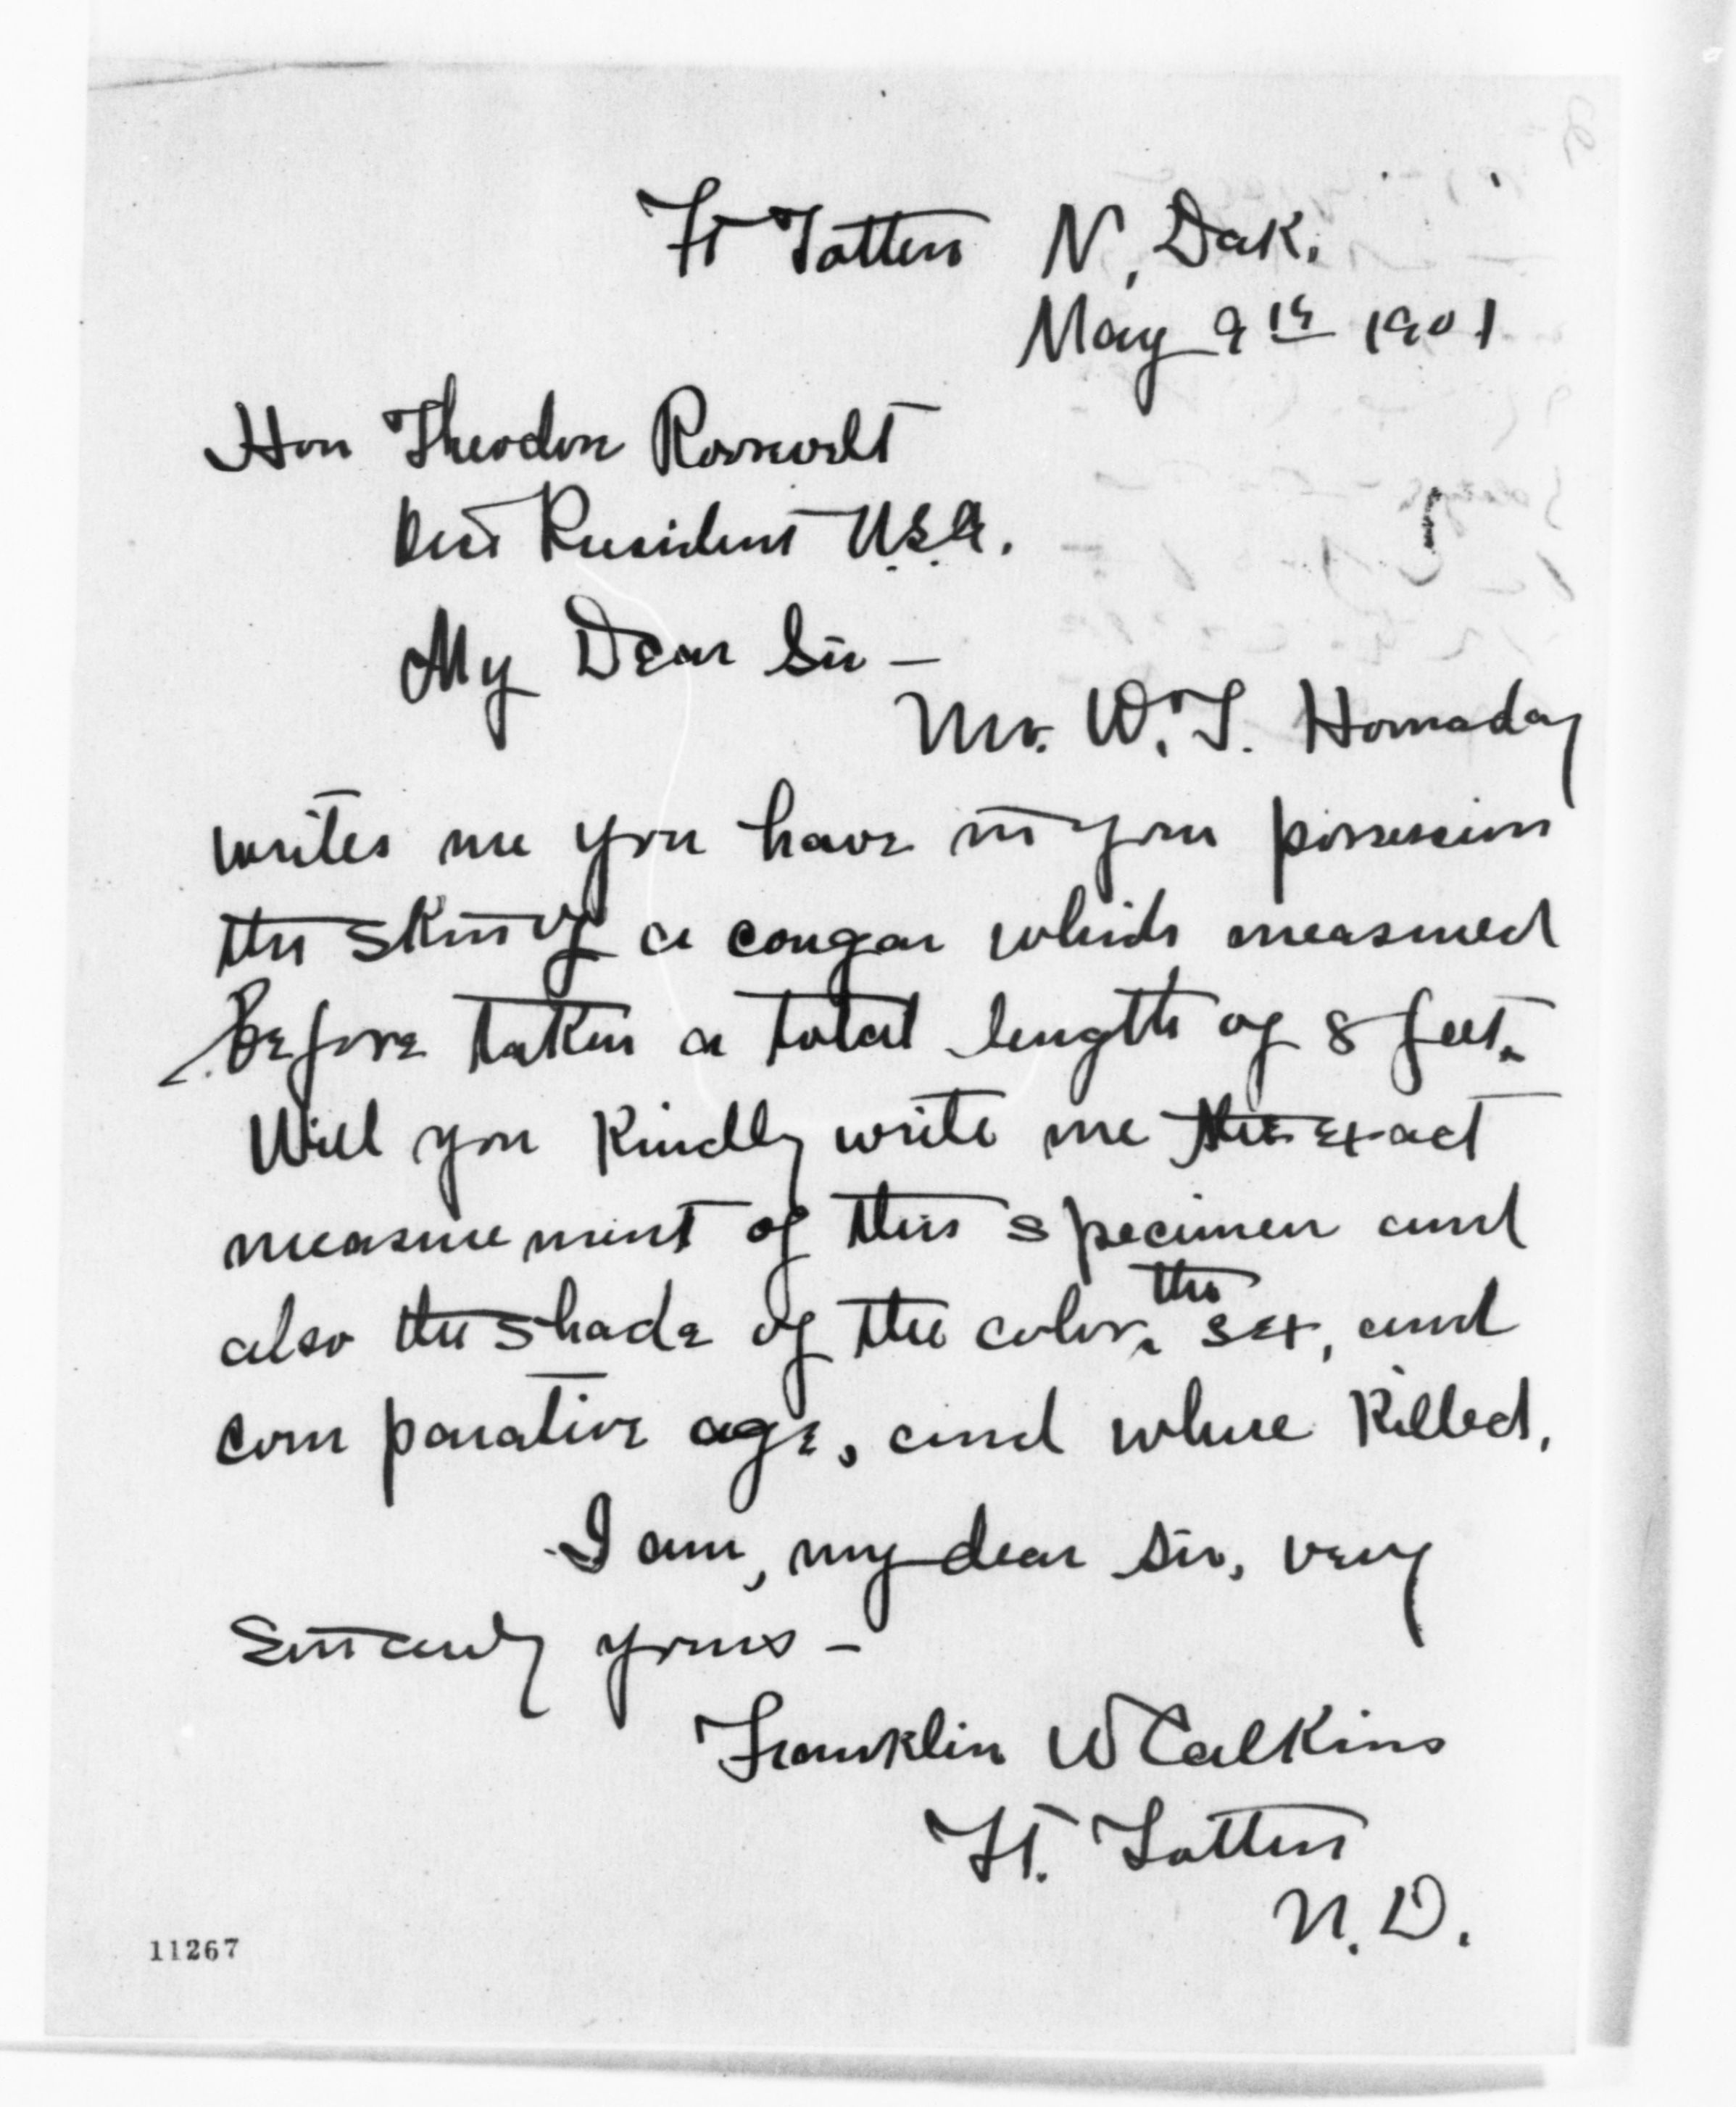 Ft Totten N. Dak.
May 9th 1901
Hon Theodore Roosevelt
Vice President U.S.A.
My Dear Sir —
Mr. W. T. Hornaday
writes me you have in your possession
the skin of a cougar which measured
before taken a total length of 8 feet.
Will you kindly write me the exact
measurement of this specimen and
also the shade of the color, the sex, and
comparative age, and where killed.
I am, my dear sir, very
Sincerely yours —
Franklin W Calkins
Ft. Totten
N.D.
11267